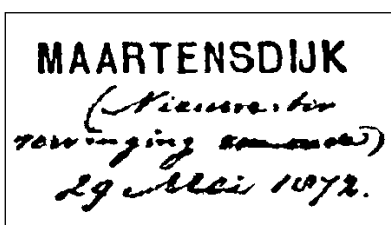 MAARTENSDIJK
(Nieuwe ter
vervanging
29 Mei 1872.